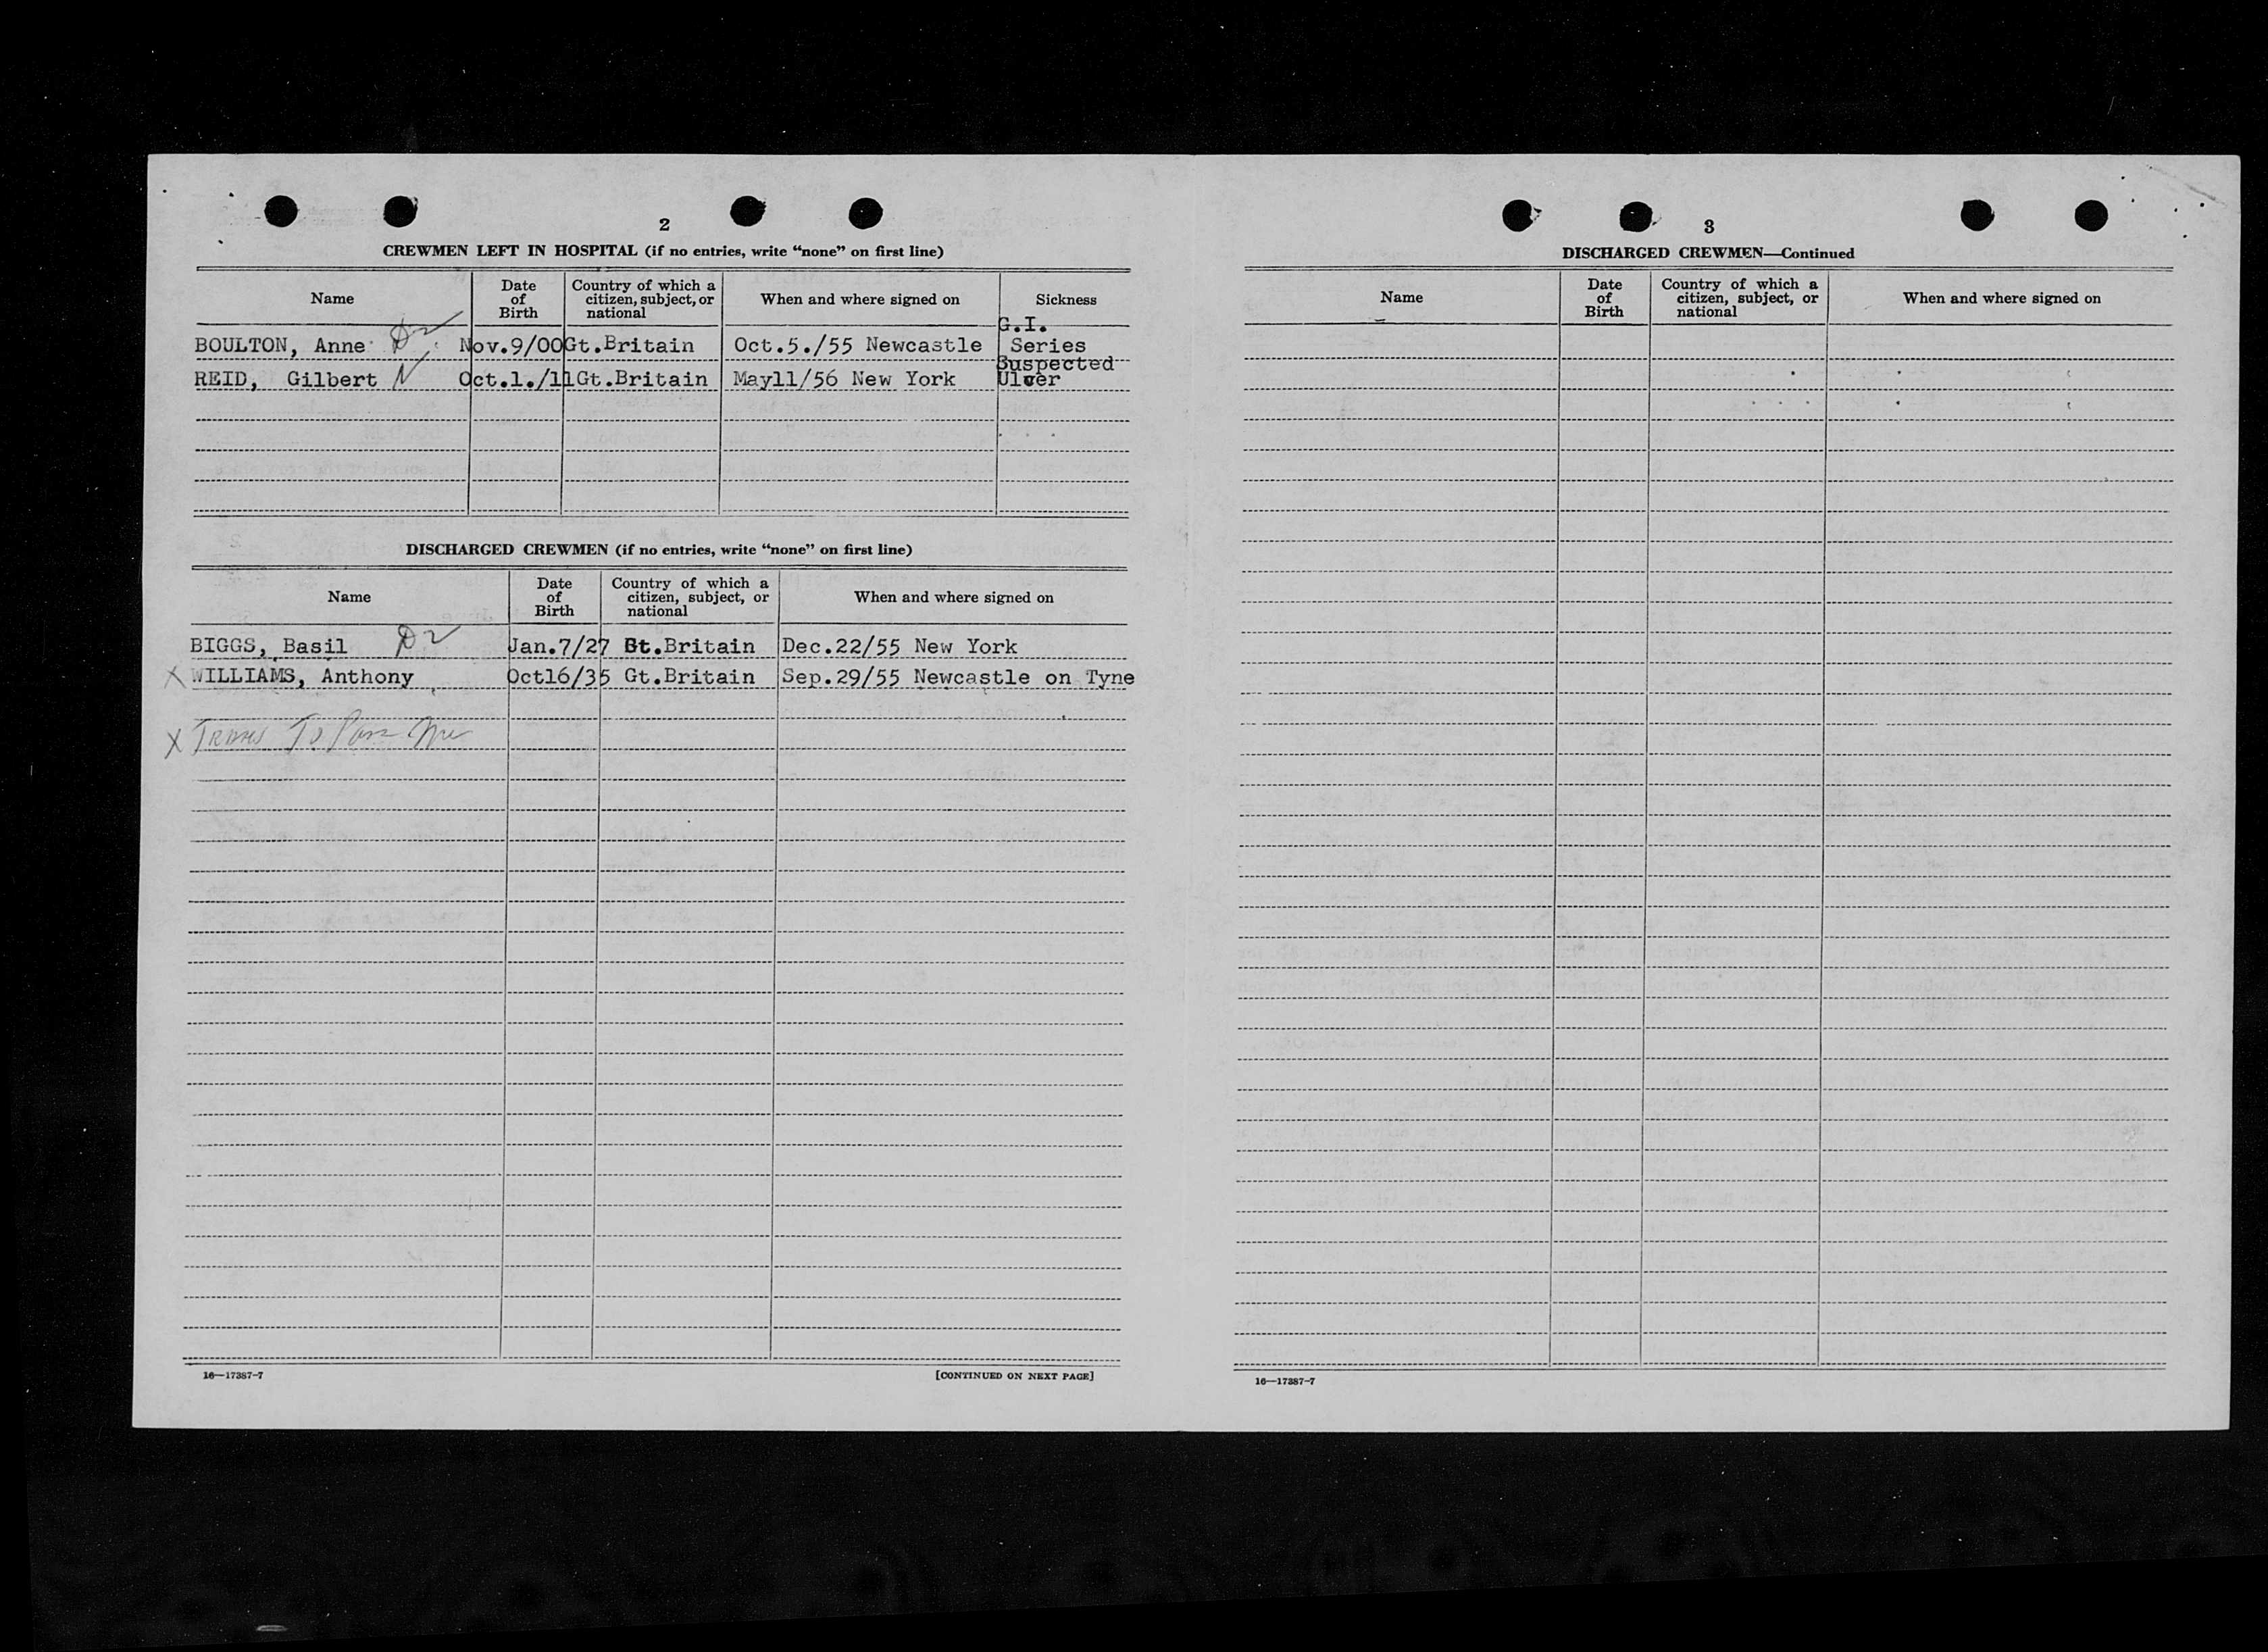 2
CREWMEN LEFT IN HOSPITAL (if no entries, write “none” on first line)
Name Date of Birth Country of which a citizen, subject, or national When and where signed on Sickness
BOULTON, Anne D2 Nov.9/00 Gt.Britain Oct.5./55 Newcastle G.I. Series
REID, Gilbert N Oct.1./11 Gt.Britain May11/56 New York Suspected Ulcer
DISCHARGED CREWMEN (if no entries, write “none” on first line)
Name Date of Birth Country of which a citizen, subject, or national When and where signed on
BIGGS, Basil D2 Jan.7/27 Gt.Britain Dec.22/55 New York
X WILLIAMS, Anthony Oct16/35 Gt.Britain Sep.29/55 Newcastle on Tyne
X Trans To
16—17387-7 [CONTINUED ON NEXT PAGE]
3
DISCHARGED CREWMEN—Continued
Name Date of Birth Country of which a citizen, subject, or national When and where signed on
16—17387-7